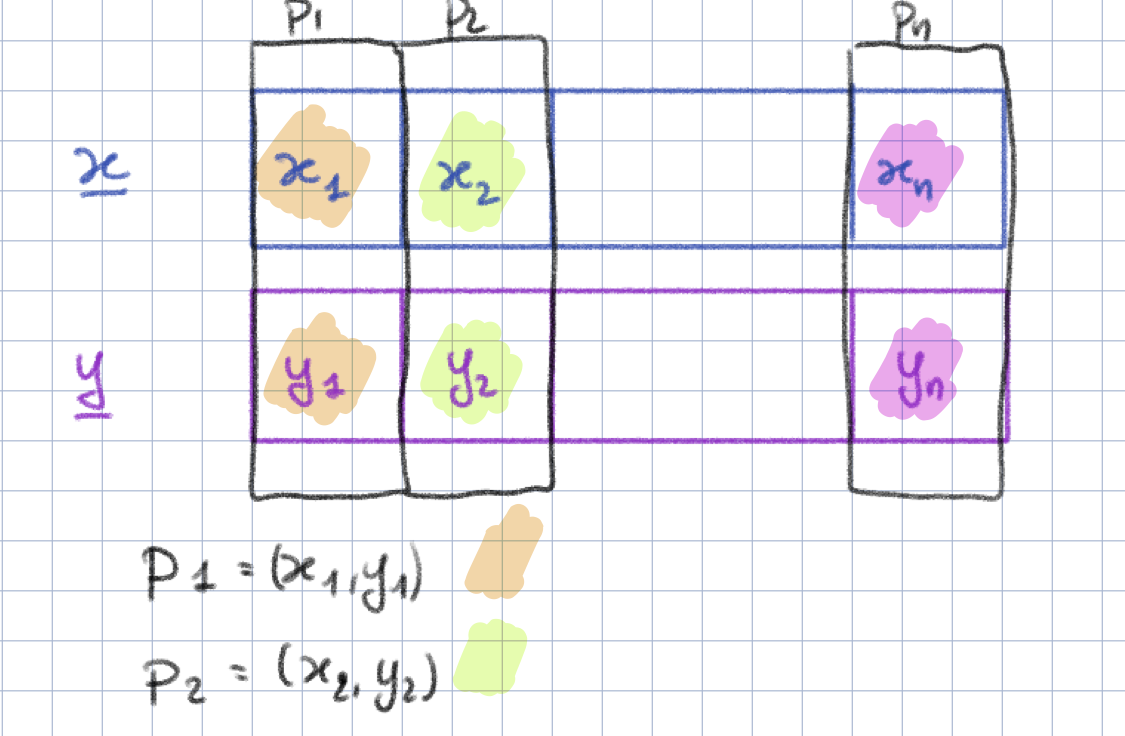 P₁ P₂ Pₙ
x x₁ x₂ xₙ
y y₁ y₂ yₙ
P₁ = (x₁, y₁)
P₂ = (x₂, y₂)